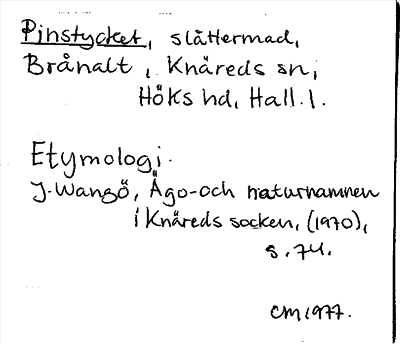 Pinstycket, slåttermad,
Brånalt, Knäreds sn,
Höks hd, Hall. l.
Etymologi.
J. Wangö, Ägo- och naturnamnen
i Knäreds socken, (1970),
s. 74.
CM 1977.